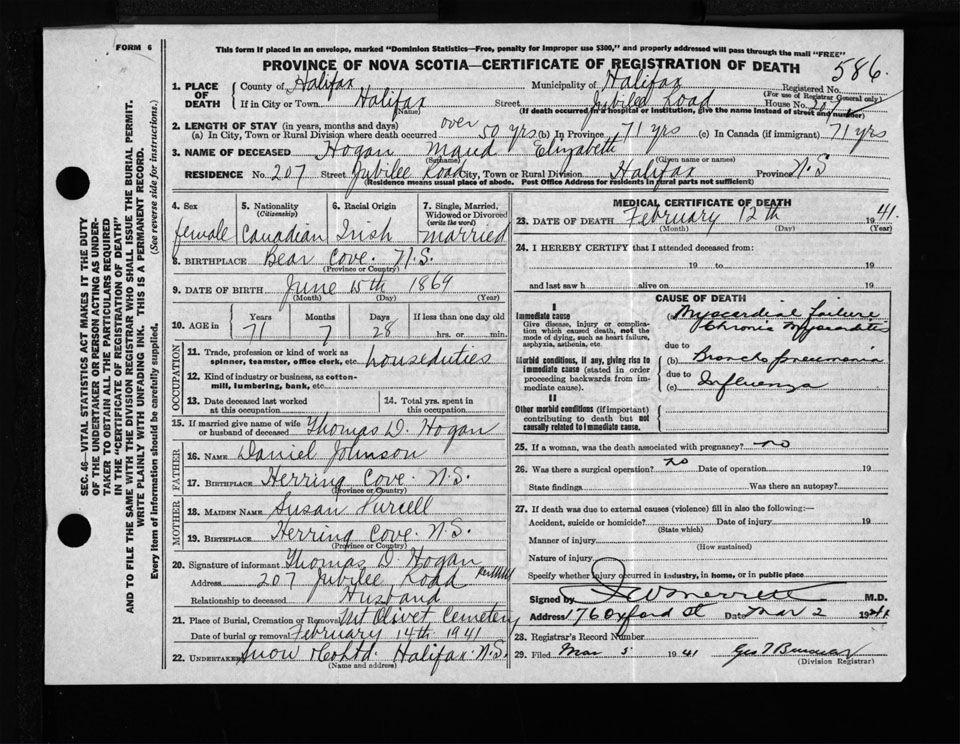 FORM 6
This form if placed in an envelope, marked "Dominion Statistics—Free, penalty for improper use $300," and properly addressed will pass through the mail "FREE"
PROVINCE OF NOVA SCOTIA—CERTIFICATE OF REGISTRATION OF DEATH
586
1. PLACE OF DEATH
County of Halifax Municipality of Halifax Registered No.
(For use of Registrar General only)
If in City or Town Halifax Street Jubilee Road House No. 207
(Name) (If death occurred in a hospital or institution, give the name instead of street and number)
2. LENGTH OF STAY (in years, months and days)
(a) In City, Town or Rural Division where death occurred over 50 yrs (b) In Province 71 yrs (c) In Canada (if immigrant) 71 yrs
3. NAME OF DECEASED Hogan Maud Elizabeth
(Surname) (Given name or names)
RESIDENCE No. 207 Street Jubilee Road City, Town or Rural Division Halifax Province N.S
(Residence means usual place of abode. Post Office Address for residents in rural parts not sufficient)
4. Sex female
5. Nationality (Citizenship) Canadian
6. Racial Origin Irish
7. Single, Married, Widowed or Divorced (write the word) married
8. BIRTHPLACE Bear Cove. N.S.
(Province or Country)
9. DATE OF BIRTH June 15th 1869
(Month) (Day) (Year)
10. AGE in Years Months Days If less than one day old
71 7 28 hrs. or min.
OCCUPATION
11. Trade, profession or kind of work as spinner, teamster, office clerk, etc. houseduties
12. Kind of industry or business, as cotton-mill, lumbering, bank, etc.
13. Date deceased last worked at this occupation
14. Total yrs. spent in this occupation
15. If married give name of wife or husband of deceased Thomas D. Hogan
FATHER
16. Name Daniel Johnson
17. Birthplace Herring Cove N.S.
(Province or Country)
MOTHER
18. Maiden Name Susan Purcell
19. Birthplace Herring Cove. N.S.
(Province or Country)
20. Signature of informant Thomas D. Hogan
Address 207 Jubilee Road
Relationship to deceased Husband
21. Place of Burial, Cremation or Removal Mt Olivet Cemetery
Date of burial or removal February 14th 1941
22. Undertaker Snow & Co Ltd. Halifax. N.S.
(Name and address)
MEDICAL CERTIFICATE OF DEATH
23. DATE OF DEATH February 12th 1941.
(Month) (Day) (Year)
24. I HEREBY CERTIFY that I attended deceased from:
19 to 19
and last saw h alive on 19
CAUSE OF DEATH
I
Immediate cause
Give disease, injury or complication which caused death, not the mode of dying, such as heart failure, asphyxia, asthenia, etc.
(a) Myocardial failure
Chronic Myocarditis
due to
Morbid conditions, if any, giving rise to immediate cause (stated in order proceeding backwards from immediate cause).
(b) Broncho pneumonia
due to
(c) Influenza
II
Other morbid conditions (if important) contributing to death but not causally related to immediate cause.
25. If a woman, was the death associated with pregnancy? no
26. Was there a surgical operation? no Date of operation 19
State findings Was there an autopsy?
27. If death was due to external causes (violence) fill in also the following:—
Accident, suicide or homicide? Date of injury 19
(State which)
Manner of injury
(How sustained)
Nature of injury
Specify whether injury occurred in industry, in home, or in public place
Signed by M.D.
Address 176 Oxford St Date Mar 2 1941
28. Registrar's Record Number
29. Filed Mar 5 1941
(Division Registrar)
SEC. 46—VITAL STATISTICS ACT MAKES IT THE DUTY
OF THE UNDERTAKER OR PERSON ACTING AS UNDERTAKER TO OBTAIN ALL THE PARTICULARS REQUIRED
IN THE "CERTIFICATE OF REGISTRATION OF DEATH"
AND TO FILE THE SAME WITH THE DIVISION REGISTRAR WHO SHALL ISSUE THE BURIAL PERMIT.
WRITE PLAINLY WITH UNFADING INK. THIS IS A PERMANENT RECORD.
Every item of information should be carefully supplied. (See reverse side for instructions.)